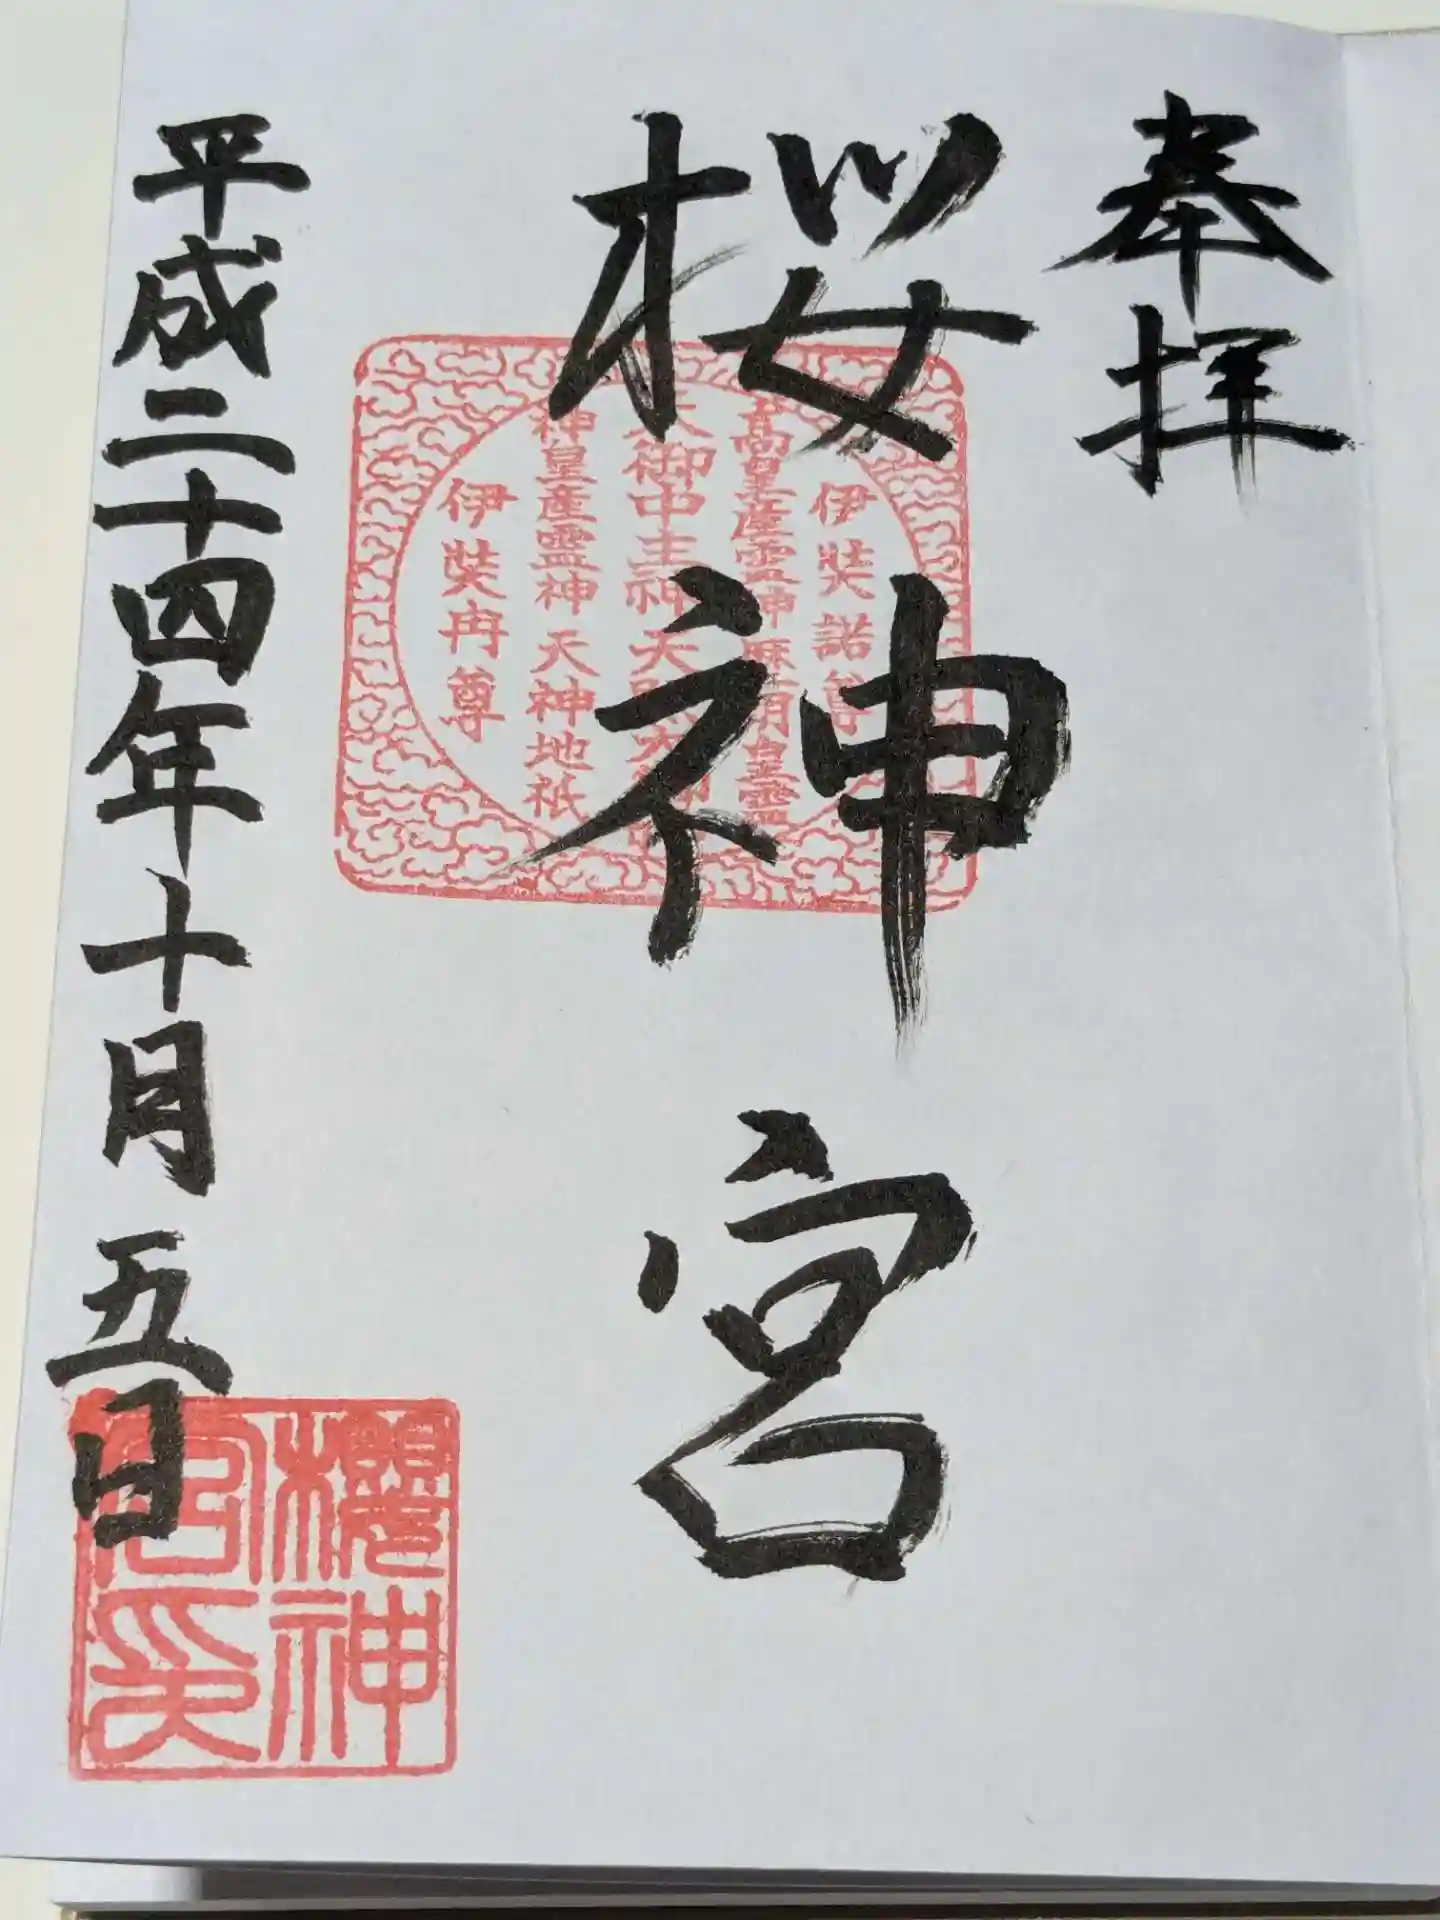 奉拝
桜神宮
平成二十四年十月五日
伊奘諾尊
高皇産霊神 歴朝皇霊
天御中主神 天照大御神
神皇産霊神 天神地祇
伊奘冉尊
櫻神
宮印